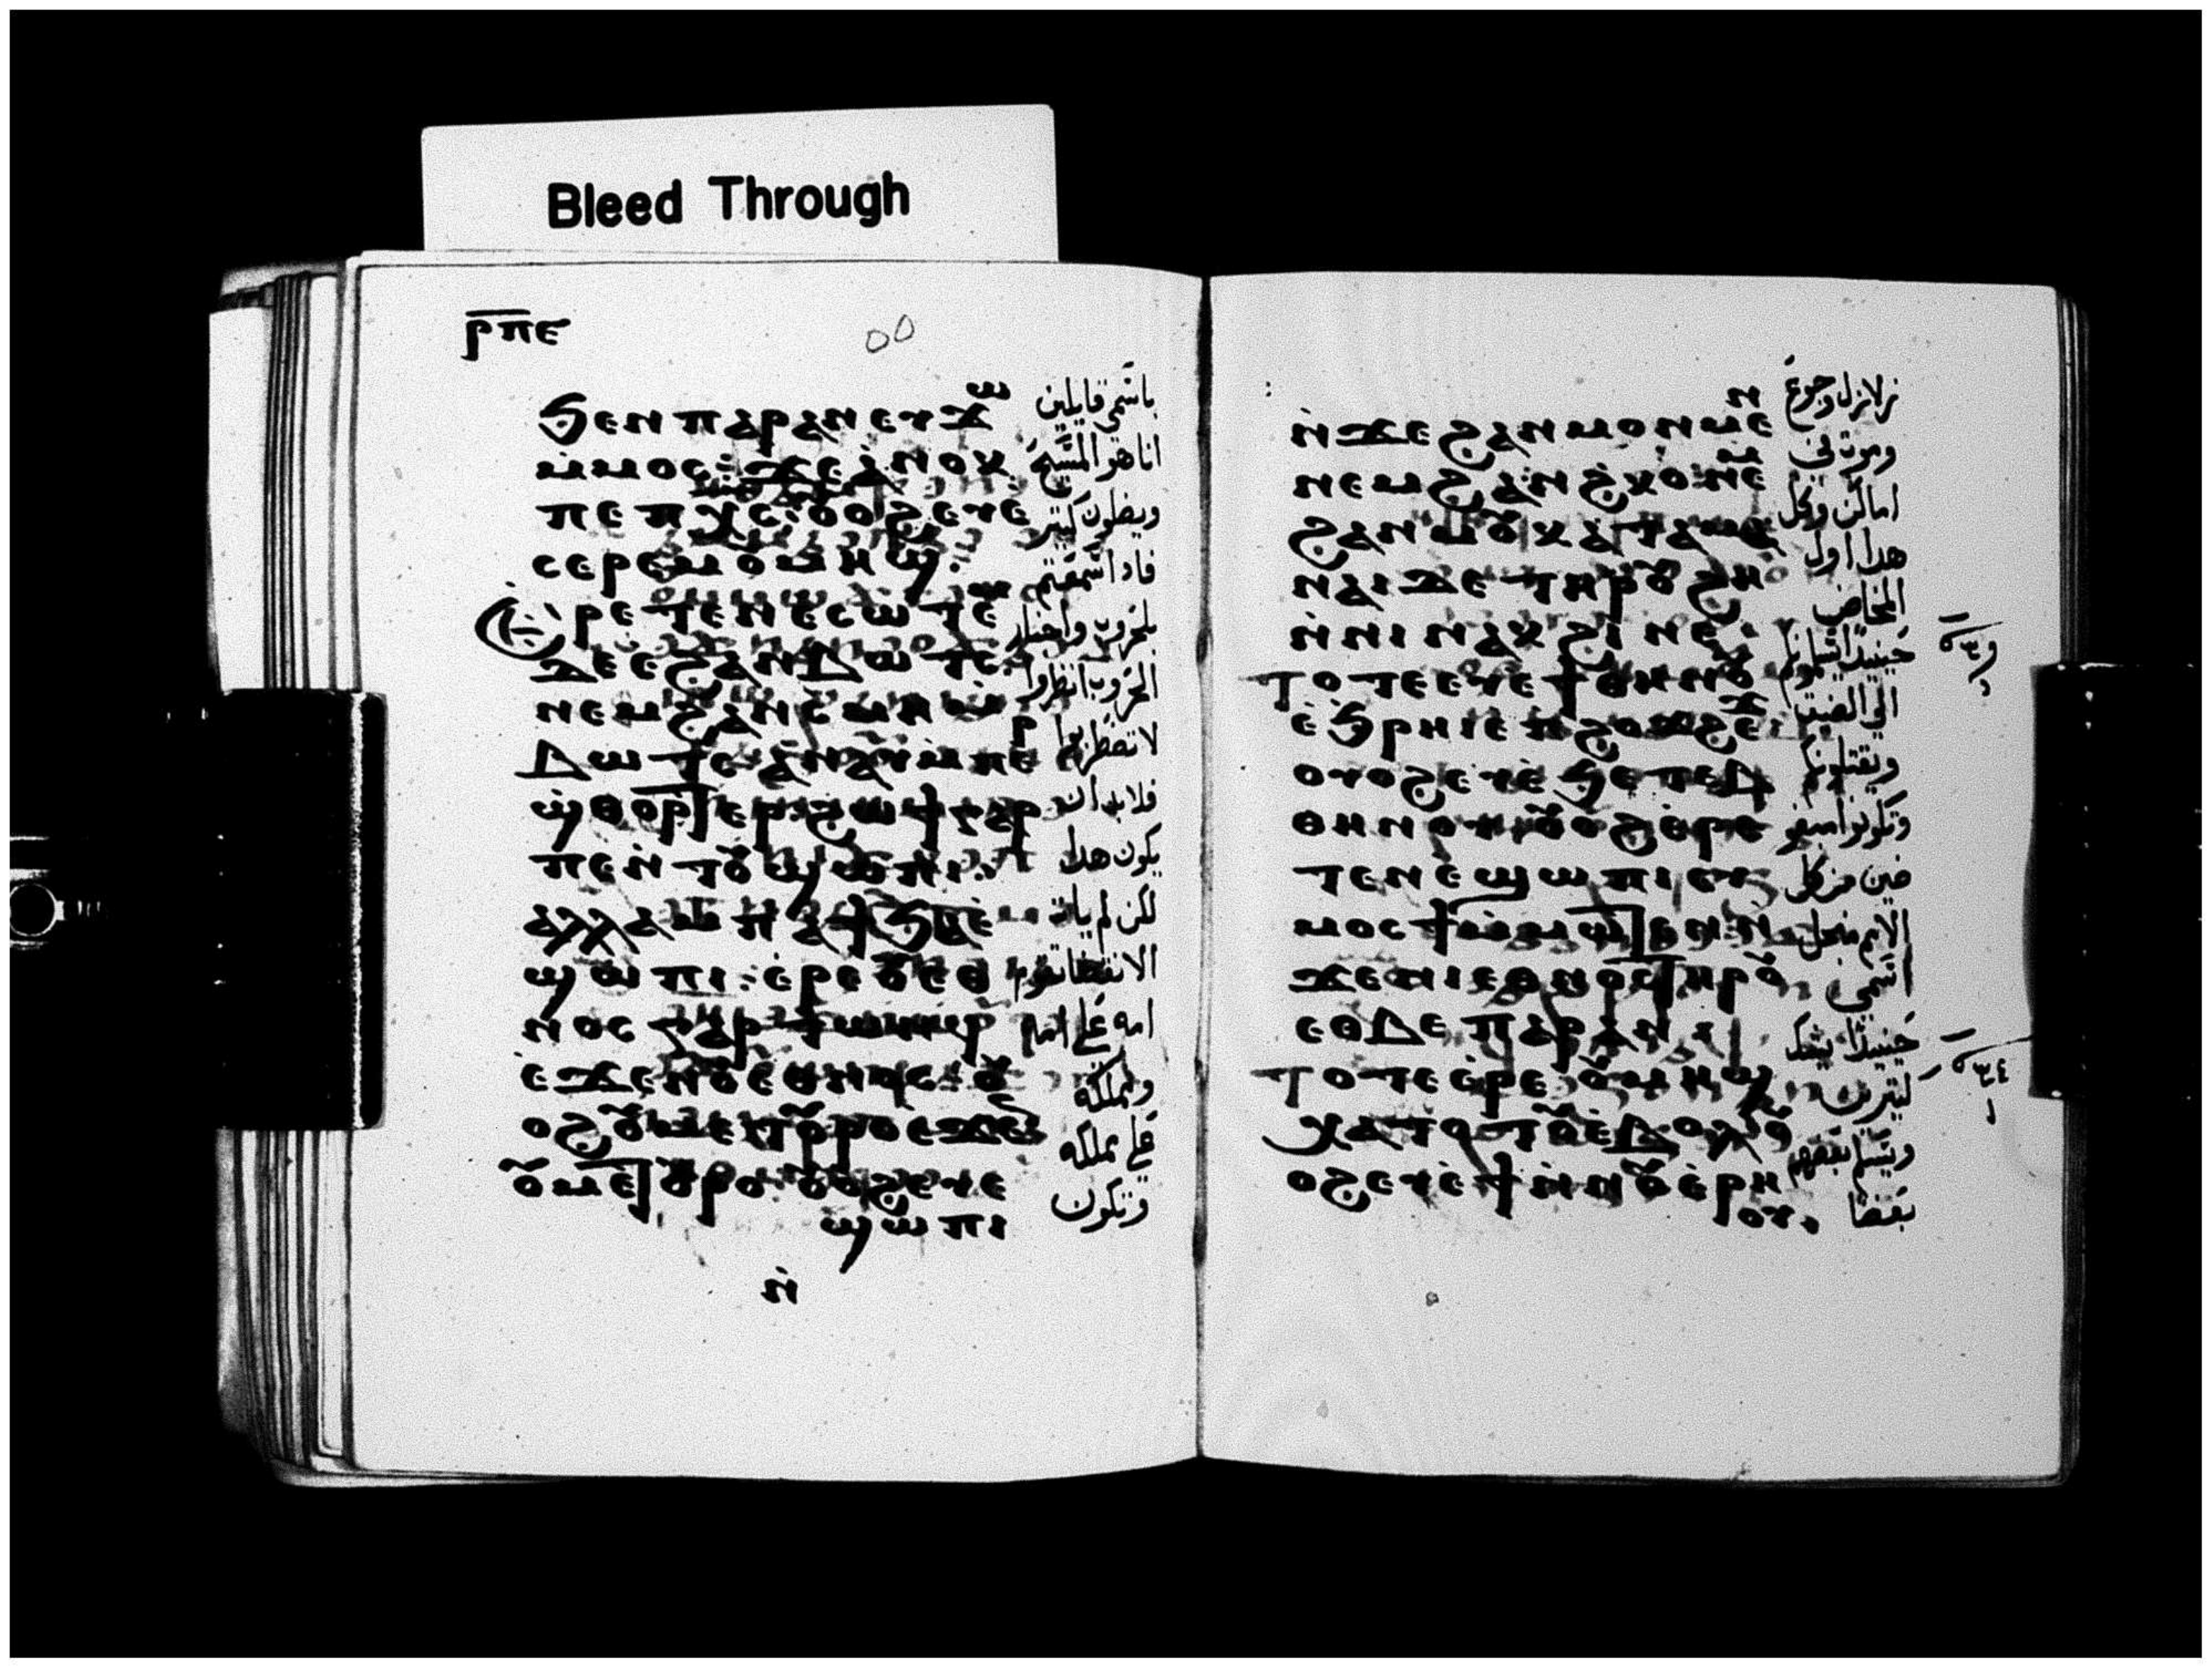 Bleed Through
ⲣⲡⲉ
ϧⲉⲛ ⲡⲁⲣⲁⲛ ⲉⲩϫⲱ
ⲙ̀ⲙⲟⲥ: ϫⲉ ⲁ̀ⲛⲟⲕ
ⲡⲉ ⲡⲭⲥ: ⲟⲩⲟϩ ⲉⲩⲉ̀
ⲥⲉⲣⲉⲙ ⲟⲩⲙⲏϣ:
ⲁⲣⲉⲧⲉⲛⲉⲥⲱⲧⲉⲙ
ⲇⲉ ⲉϩⲁⲛⲃⲱⲧⲥ:
ⲛⲉⲙ ϩⲁⲛⲥ̀ⲙⲏ ⲙ̀
ⲃⲱⲧⲥ ⲁ̀ⲛⲁⲩ ⲙ̀ⲡⲉⲣ
ϣ̀ⲑⲟⲣⲧⲉⲣ: ϩⲱϯ ⲅⲁⲣ
ⲡⲉ ⲛ̀ⲧⲟⲩϣⲱⲡⲓ:
ⲁⲗⲗⲁ ⲙⲡⲁϯϧⲁⲉ̀
ϣⲱⲡⲓ: ⲉ̀ⲣⲉ ⲟⲩⲉⲑ
ⲛⲟⲥ ⲅⲁⲣ ⲧⲱⲛϥ
ⲉ̀ϫⲉⲛ ⲟⲩⲉⲑⲛⲟⲥ: ⲟⲩ
ⲟϩ ⲟⲩⲙⲉⲧⲟⲩⲣⲟ ⲉ̀ϫⲉⲛ
ⲟⲩⲙⲉⲧⲟⲩⲣⲟ ⲟⲩⲟϩ ⲉⲩⲉ
ϣⲱⲡⲓ
ⲛ̀
باسمى قايلين
انا هو المسيح
ويضلون كتير
فادا سمعتم
بلحروب واخبار
الحروب انظروا
لا تضطربوا
فلابد ان
يكون هدا
لكن لم يات
الانقضا تقوم
امه على امه
ومملكه
على مملكه
وتكون
ⲛ̀ϫⲉ ϩⲁⲛⲙⲟⲛⲙⲉⲛ
ⲛⲉⲙ ϩⲁⲛϩ̀ⲕⲟ ⲛⲉⲙ
ϩⲁⲛⲙⲟⲩ ⲕⲁⲧⲁ ⲙⲁ
ⲛⲁⲓ ⲇⲉ ⲧⲏⲣⲟⲩ ϩⲏ
ⲛ̀ⲛⲓⲛⲁⲕϩⲓ ⲛⲉ:
ⲧⲟⲧⲉ ⲉⲩⲉϯ ⲑⲏⲛⲟⲩ
ⲉ̀ϧⲣⲏⲓ ⲉⲡϩⲟϫϩⲉϫ
ⲟⲩⲟϩ ⲉⲩⲉ̀ϧⲉⲧⲉⲃ
ⲑⲏⲛⲟⲩ: ⲟⲩⲟϩ ⲉⲣⲉ
ⲧⲉⲛⲉ̀ϣⲱⲡⲓ ⲉⲩ
ⲙⲟⲥϯ ⲙ̀ⲙⲱⲧⲉⲛ ⲛ
ϫⲉ ⲛⲓⲉⲑⲛⲟⲥ ⲧⲏⲣⲟⲩ
ⲉⲑⲃⲉ ⲡⲁⲣⲁⲛ
ⲧⲟⲧⲉ ⲉⲣⲉ ⲟⲩⲙⲏϣ
ⲕⲁⲧⲟⲧⲟⲩ ⲉ̀ⲃⲟⲗ ⲟⲩ
ⲟϩ ⲉⲩⲉ̀ϯ ⲛ̀ⲛⲟⲩⲉⲣⲏ
ⲟⲩ:
زلازل وجوع
وموت في
اماكن وكل
هدا اول
المخاض
حينيدا يسلمونكم
الى الضيق
ويقتلونكم
وتكونوا مبغو
ضين من كل
الامم من اجل
اسمى
حينيدا يشك
كتيرين
ويسلم بعضهم
بعضا